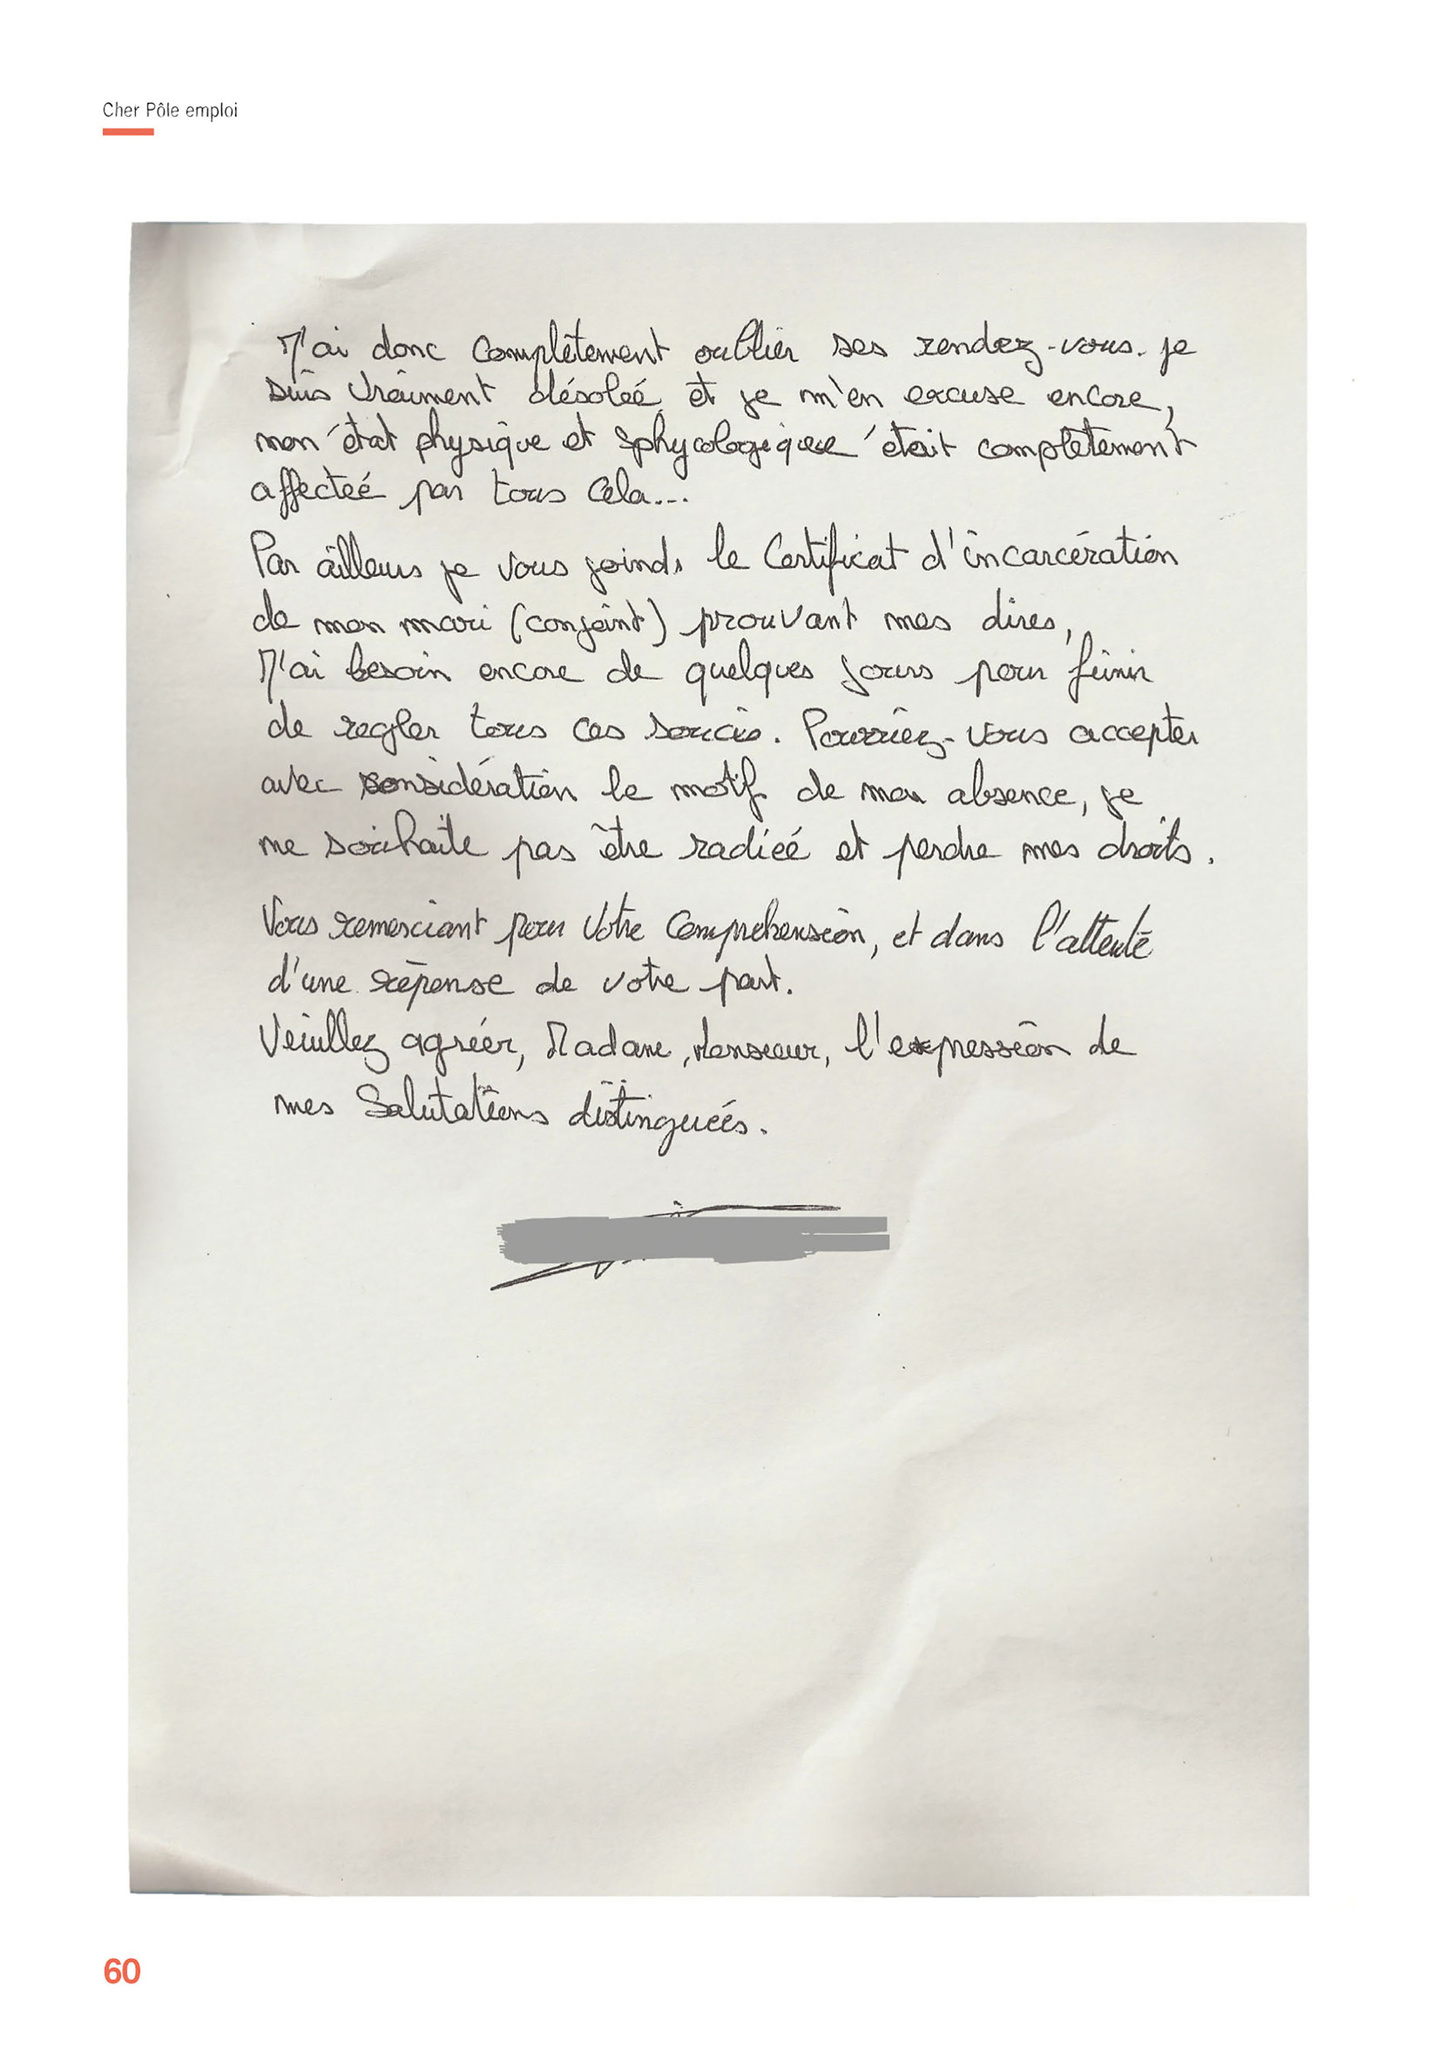 Cher Pôle emploi
J'ai donc complètement oublier ses rendez-vous. je
suis vraiment désoleé et je m'en excuse encore,
mon état physique et sphycologique était complètement
affecteé par tous cela...
Par ailleurs je vous joinds le Certificat d'incarcération
de mon mari (conjoint) prouvant mes dires,
J'ai besoin encore de quelques jours pour finir
de regler tous ces soucis. Pourriez-vous accepter
avec considération le motif de mon absence, je
ne souhaite pas être radieé et perdre mes droits.
Vous remerciant pour votre Comprehension, et dans l'attente
d'une réponse de votre part.
Veuillez agréer, Madame, Monsieur, l'expression de
mes Salutations distinguées.
60